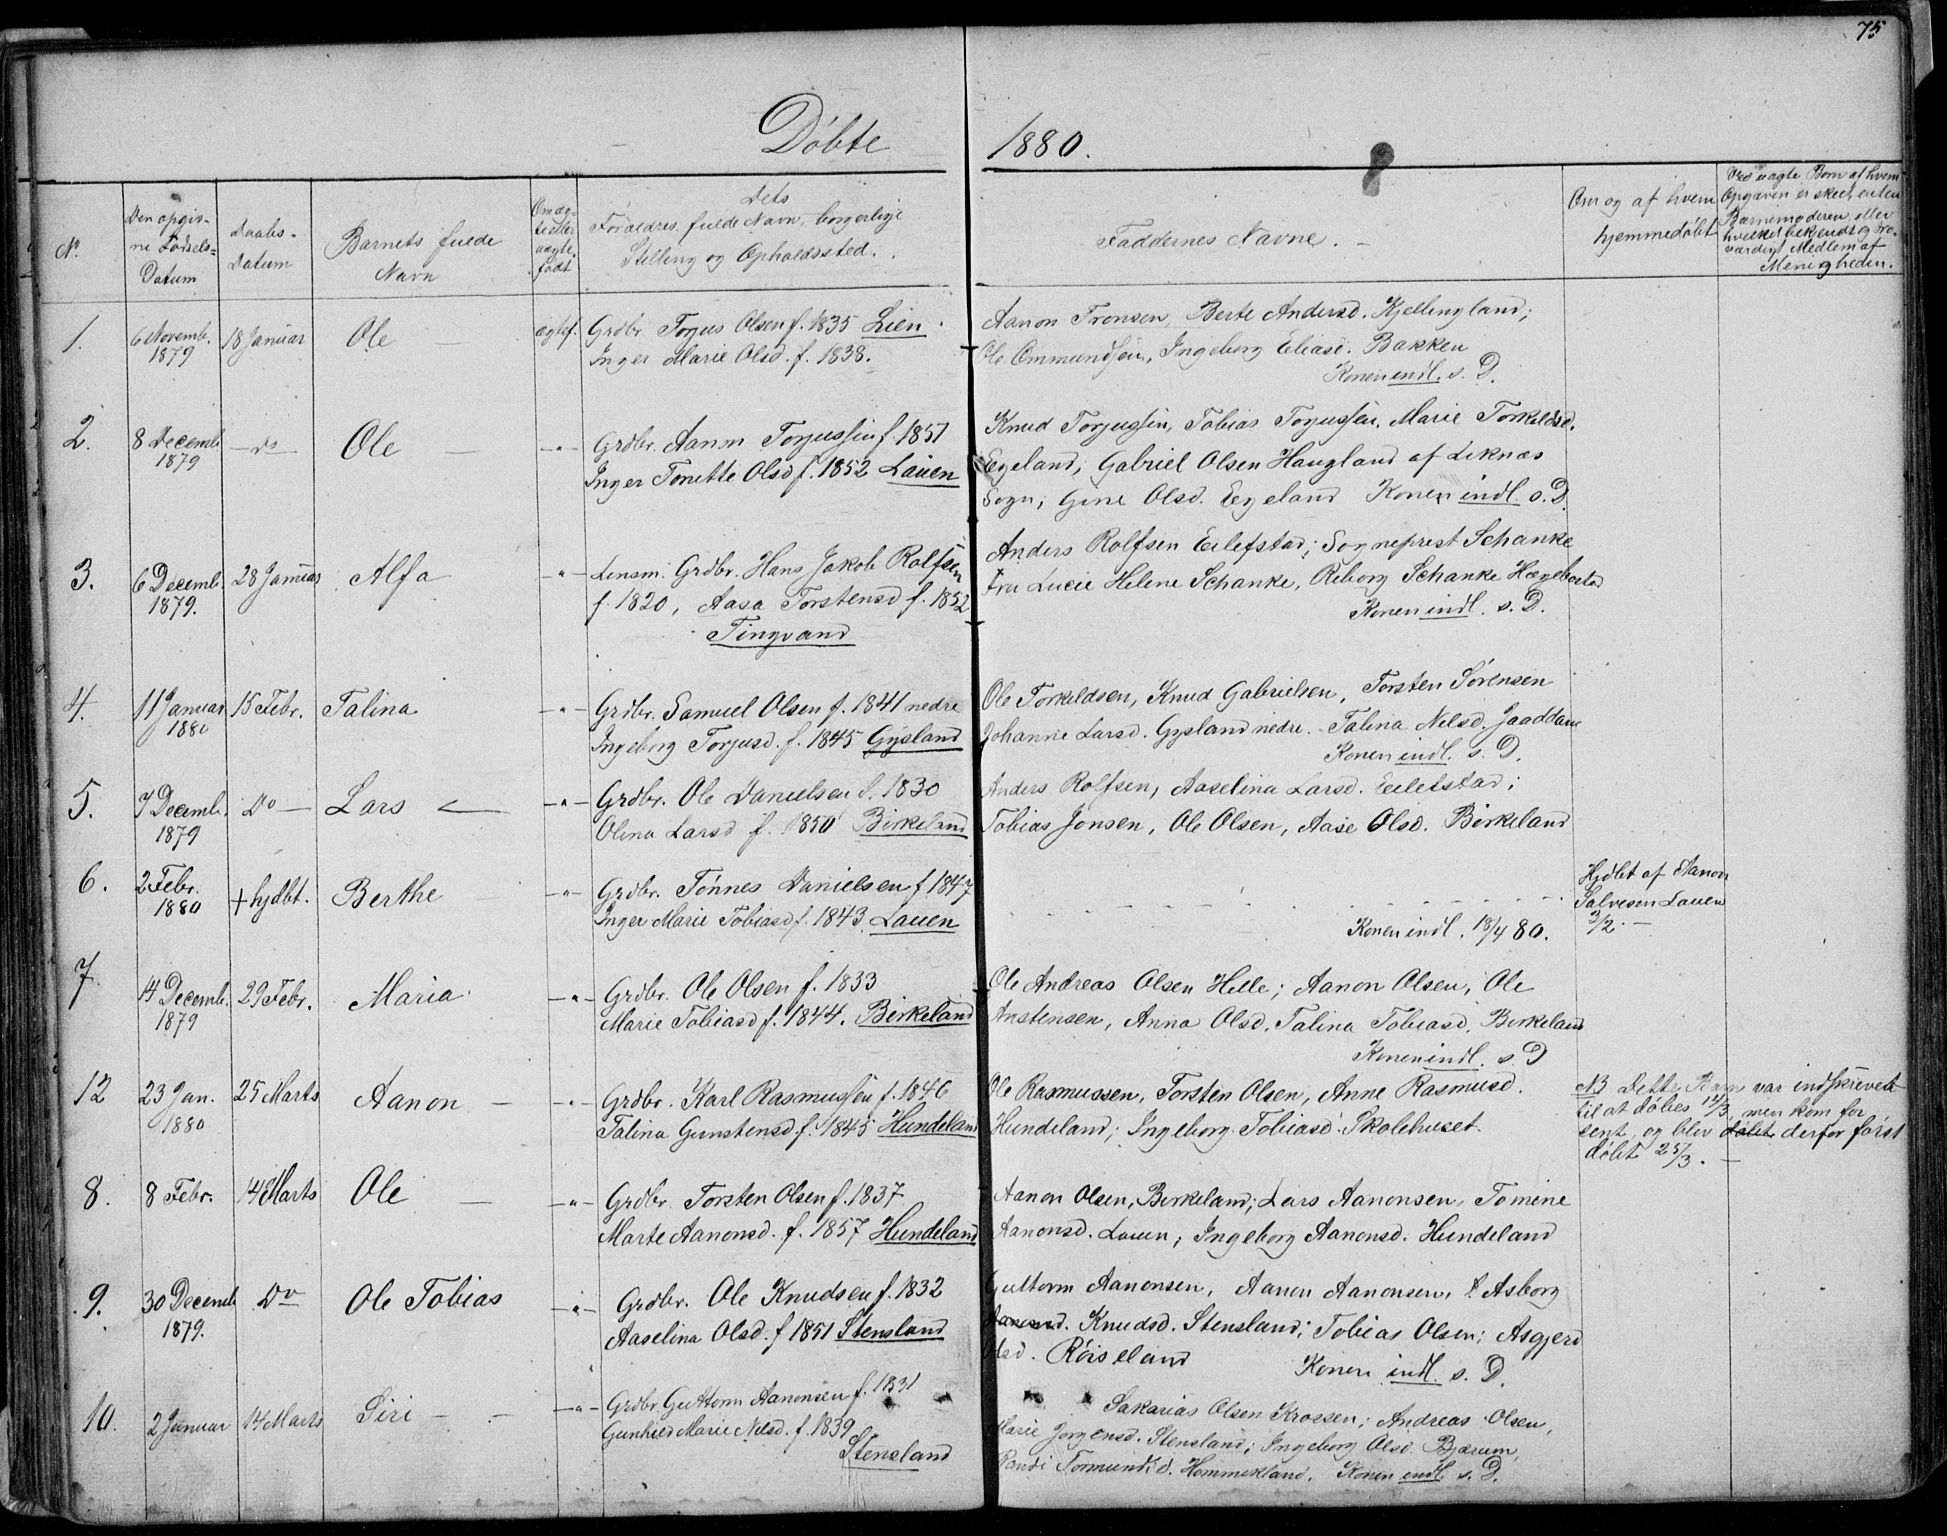 75
Døbte 1880.
No.
Den opgivne Fødsels=Datum
Daabs-Datum
Barnets fulde Navn
Om ægte eller uægte født
Dets Foræeldres fulde Navn, borgerlige Stilling og Opholdssted.
Faddernes Navne. -
Om og af hvem hjemmedøbt
Ved uægte Børn af hvem Opgaven er skeet, enten Barnemoderen, eller hvilket bekjendt og troværdigt Medlem af Menigheden.
1. 6 Novemb. 1879 18 Januar Ole ægtef. Grdbr. Torjus Olsen f. 1835 Lien.
Inger Marie Olsd. f. 1838.
Aanon Tronsen, Berte Andersd. Kjellingland;
Ole Ommundsen, Ingeborg Eliasd. Bakken
Konen indl. s. D.
2. 8 Decemb 1879 - do - Ole - " - Grdbr. Aanon Torjussen f. 1851
Inger Tonette Olsd f. 1852 Lauen
Knud Torjussen, Tobias Torjussen, Marie Torkildsd.
Egeland; Gabriel Olsen Haugland af Liknæs
Sogn; Gine Olsd. Egeland Konen indl. s. D.
3. 6 Decemb. 1879. 28 Januar Alfa - " - Lensm. Grdbr. Hans Jakob Rolfsen
f. 1820, Aasa Torstensd f. 1852
Tingvand
Anders Rolfsen Eilefstad; Sogneprest Schanke
Fru Lucie Helene Schanke, Reborg Schanke Hægebostad
Konen indl. s. D.
4. 11 Januar 1880 15 Febr. Talina - " - Grdbr. Samuel Olsen f. 1841 nedre
Ingeborg Torjusd. f. 1845 Gysland
Ole Torkildsen, Knud Gabrielsen, Torsten Sørensen
Johanne Larsd. Gysland nedre. Talina Nilsd.
Konen indl. s. D.
5. 7 Decemb. 1879 Do - Lars - " - Grdbr. Ole Danielsen f. 1830
Olina Larsd f. 1850 Birkeland
Anders Rolfsen, Aaselina Larsd. Eilefstad;
Tobias Jonsen, Ole Olsen, Aase Olsd. Birkeland
6. 2 Febr. 1880 + hjdbt. Berthe - " - Grdbr. Tønnes Danielsen f. 1847
Inger Marie Tobiasd f. 1843. Lauen
Konen indl. 18/4 80.
Hjdbt af Aanon
Salvesen Lauen
3/2. -
7. 14 Decemb. 1879 29 Febr. Maria - " - Grdbr. Ole Olsen f. 1833
Marie Tobiasd f. 1844. Birkeland
Ole Andreas Olsen Helle; Aanon Olsen, Ole
Anstensen, Anna Olsd. Talina Tobiasd. Birkeland
Konen indl. s D
12 23 Jan. 1880 25 Marts Aanon - " - Grdbr. Karl Rasmussen f. 1846
Talina Gunstensd f. 1845 Hundeland
Ole Rasmussen, Torsten Olsen, Anne Rasmusd.
Hundeland; Ingeborg Tobiasd. Skolehuset.
NB Dette Barn var indskrevet
til at døbes 14/3, men kom for
sent, og blev døbt derfor først
døbt 25/3. -
8. 8 Febr. 14 Marts Ole - " - Grdbr. Torsten Olsen f. 1837
Marte Aanonsd. f. 1857 Hundeland
Aanon Olsen, Birkeland; Lars Aanonsen, Tomine
Aanonsd. Lauen; Ingeborg Aanonsd. Hundeland
9. 30 Decemb 1879. Do Ole Tobias - " - Grdbr. Ole Knudsen f. 1832
Aaselina Olsd. f 1851 Stensland
Guttorm Aanonsen, Aanen Aanonsen, Asborg
Aanonsd. Knudsd. Stensland; Tobias Olsen; Asgjerd
Olsd. Røiseland Konen indl. s. D.
10. 2 Januar 14 Marts Siri - " - Grdbr. Guttorm Aanonsen f. 1831
Gunhild Marie Nilsd. f. 1839
Stensland
Sakarias Olsen Krossen; Andreas Olsen,
Marie Jørgensd. Stensland; Ingeborg Olsd. Bjærum,
Randi Tormundsd. Hommekland. Konen indl. s. D.